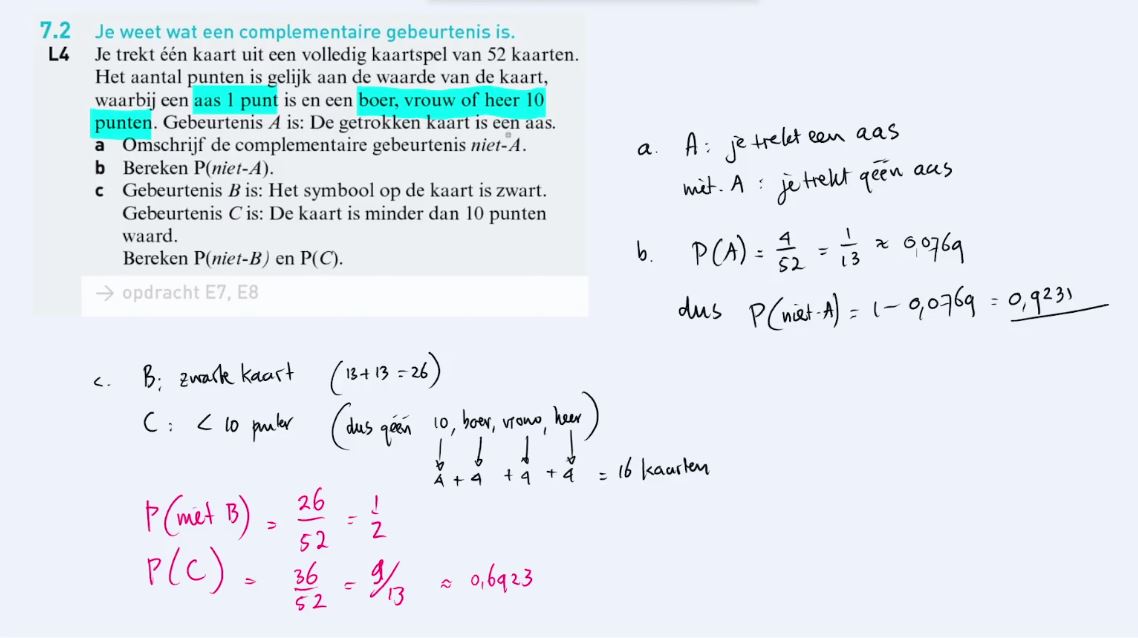 7.2 Je weet wat een complementaire gebeurtenis is.
L4 Je trekt één kaart uit een volledig kaartspel van 52 kaarten.
Het aantal punten is gelijk aan de waarde van de kaart,
waarbij een aas 1 punt is en een boer, vrouw of heer 10
punten. Gebeurtenis A is: De getrokken kaart is een aas.
a Omschrijf de complementaire gebeurtenis niet-A.
b Bereken P(niet-A).
c Gebeurtenis B is: Het symbool op de kaart is zwart.
Gebeurtenis C is: De kaart is minder dan 10 punten
waard.
Bereken P(niet-B) en P(C).
→ opdracht E7, E8
a. A: je trekt een aas
niet-A: je trekt géén aas
b. P(A) = 4/52 = 1/13 ≈ 0,0769
dus P(niet-A) = 1 - 0,0769 = 0,9231
c. B: zwarte kaart (13+13=26)
C: < 10 punten (dus géén 10, boer, vrouw, heer)
4 + 4 + 4 + 4 = 16 kaarten
P(niet B) = 26/52 = 1/2
P(C) = 36/52 = 9/13 ≈ 0,6923